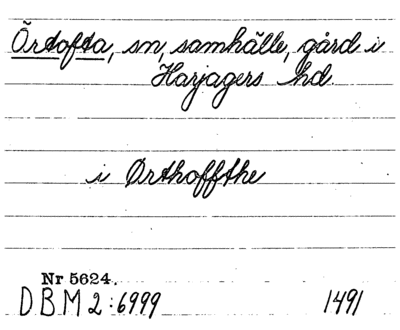 Örtofta, sn, samhälle, gård i
Harjagers hd.
i Ørthoffthe
Nr 5624.
DBM 2:6999 1491